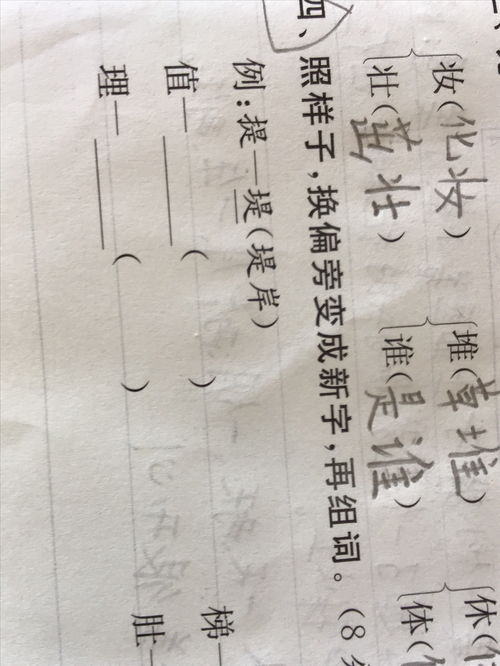 妆(化妆) 堆(草堆) 休(
壮(茁壮) 谁(是谁) 体(
四、照样子,换偏旁变成新字,再组词。(8
例:提—堤(堤岸)
值—____( ) 梯—
理—____( ) 肚—